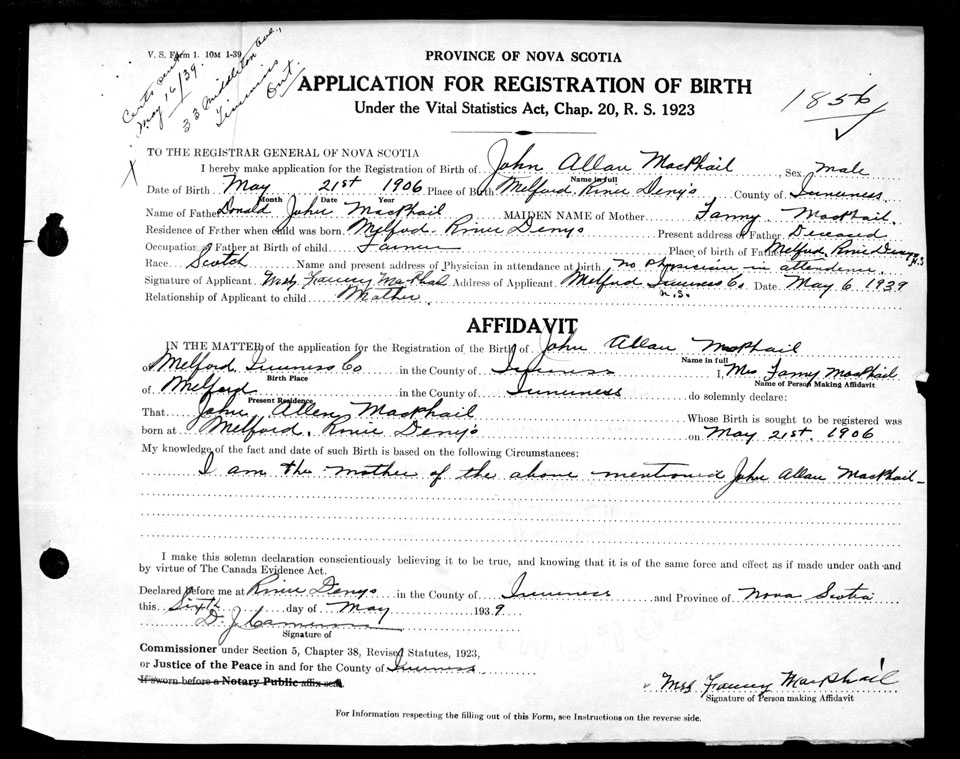 V. S. Form 1. 10M 1-39
Certs sent
May 16/39.
33 Middleton Ave.,
Timmins
Ont.
PROVINCE OF NOVA SCOTIA
APPLICATION FOR REGISTRATION OF BIRTH
Under the Vital Statistics Act, Chap. 20, R. S. 1923
1856
TO THE REGISTRAR GENERAL OF NOVA SCOTIA
I hereby make application for the Registration of Birth of John Allan MacPhail Sex male
Name in full
Date of Birth May 21st 1906 Place of Birth Melford River Denys County of Inverness
Month Date Year
Name of Father Donald John MacPhail MAIDEN NAME of Mother Fanny MacPhail
Residence of Father when child was born Melford River Denys Present address of Father Deceased
Occupation of Father at Birth of child Farmer Place of birth of Father Melford River Denys N.S
Race Scotch Name and present address of Physician in attendance at birth no physician in attendence.
Signature of Applicant Mrs Fanny MacPhail Address of Applicant Melford Inverness Co. N.S. Date May 6 1939
Relationship of Applicant to child Mother
AFFIDAVIT
IN THE MATTER of the application for the Registration of the Birth of John Allan MacPhail
Name in full
of Melford Inverness Co in the County of Inverness I, Mrs Fanny MacPhail
Birth Place Name of Person Making Affidavit
of Melford in the County of Inverness do solemnly declare:
Present Residence
That John Allen MacPhail Whose Birth is sought to be registered was
born at Melford, River Denys on May 21st. 1906
My knowledge of the fact and date of such Birth is based on the following Circumstances:
I am the mother of the above mentioned John Allan MacPhail
I make this solemn declaration conscientiously believing it to be true, and knowing that it is of the same force and effect as if made under oath and
by virtue of The Canada Evidence Act.
Declared before me at River Denys in the County of Inverness and Province of Nova Scotia
this Sixth day of May 1939
D. J. Cameron
Signature of
Commissioner under Section 5, Chapter 38, Revised Statutes, 1923,
or Justice of the Peace in and for the County of Inverness
If sworn before a Notary Public affix seal.
Mrs Fanny MacPhail
Signature of Person making Affidavit
For Information respecting the filling out of this Form, see Instructions on the reverse side.